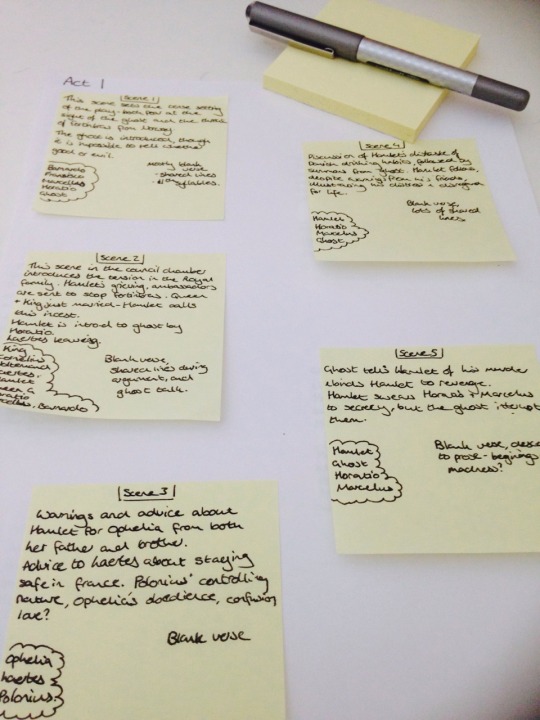 Act 1
Scene 1
This scene sets the tense setting
of the play - both fear at the
sight of the ghost and the threat
of Fortinbras from Norway
The ghost is introduced, though
it is impossible to tell whether
good or evil.
Barnardo
Francisco
Marcellus
Horatio
Ghost
mostly blank
verse
- shared lines
syllables.
Scene 2
This scene in the council chamber
introduces the tension in the Royal
family. Hamlet's grieving, ambassadors
are sent to stop Fortinbras. Queen
+ King just married - Hamlet calls
this incest.
Hamlet is introd to ghost by
Horatio.
Laertes leaving.
King
Cornelius
Voltemand
Laertes.
Hamlet
Queen G
Horatio
Marcellus. Barnardo
Blank verse,
shared lines during
argument, and
ghost talk.
Scene 3
Warnings and advice about
Hamlet for Ophelia from both
her father and brother.
Advice to Laertes about staying
safe in France. Polonius' controlling
nature, Ophelia's obedience, confusion
love?
Ophelia
Laertes
Polonius.
Blank verse
Scene 4
Discussion of Hamlet's distaste of
Danish drinking habits, followed by
summons from ghost. Hamlet follows,
despite warning from his friends,
illustrating his distress + disregard
for life.
Hamlet
Horatio
Marcellus
Ghost
Blank verse,
lots of shared
lines.
Scene 5
Ghost tells Hamlet of his murder
+ binds Hamlet to revenge.
Hamlet swears Horatio + Marcellus
to secrecy, but the ghost interrupt
them.
Hamlet
Ghost
Horatio
Marcellus
Blank verse,
to prose - beginnings
madness?